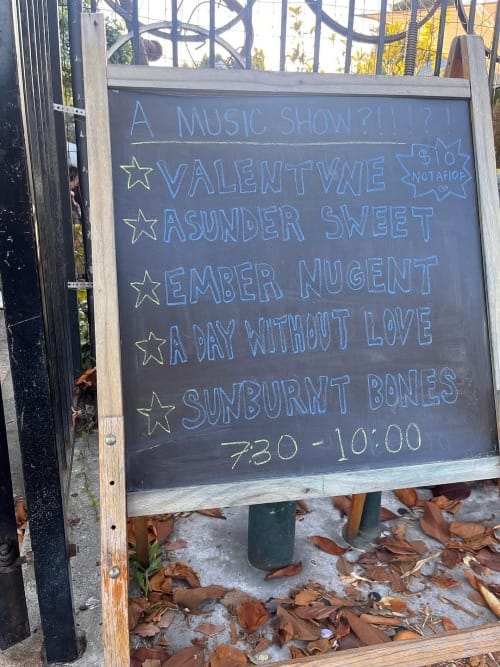 A MUSIC SHOW?!!!?!
VALENTVNE
$10
NOTAFLOF
ASUNDER SWEET
EMBER NUGENT
A DAY WITHOUT LOVE
SUNBURNT BONES
7:30 - 10:00